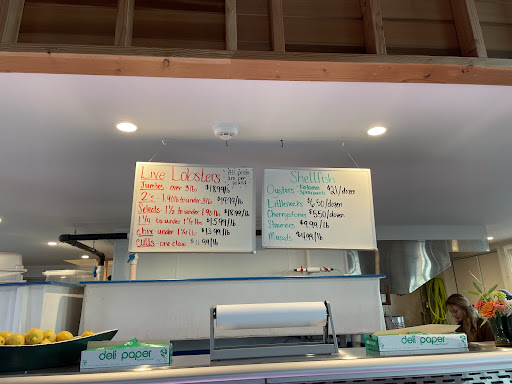 Live Lobsters
* All prices are per pound
Jumbos - over 3 lb $18.99/lb
2's - 1.90lb to under 3lb $19.99/lb
Selects 1½ to under 1.90 lb $18.99/lb
1¼ to under 1½ lbs $15.99/lb
Chix - under 1¼ lb $13.99/lb
Culls - one claw $11.99/lb
Shellfish
Oysters - $21/dozen
Littlenecks $6.50/dozen
Cherrystones $5.50/dozen
Steamers $9.99/lb
Mussels $4.99/lb
deli paper
deli paper